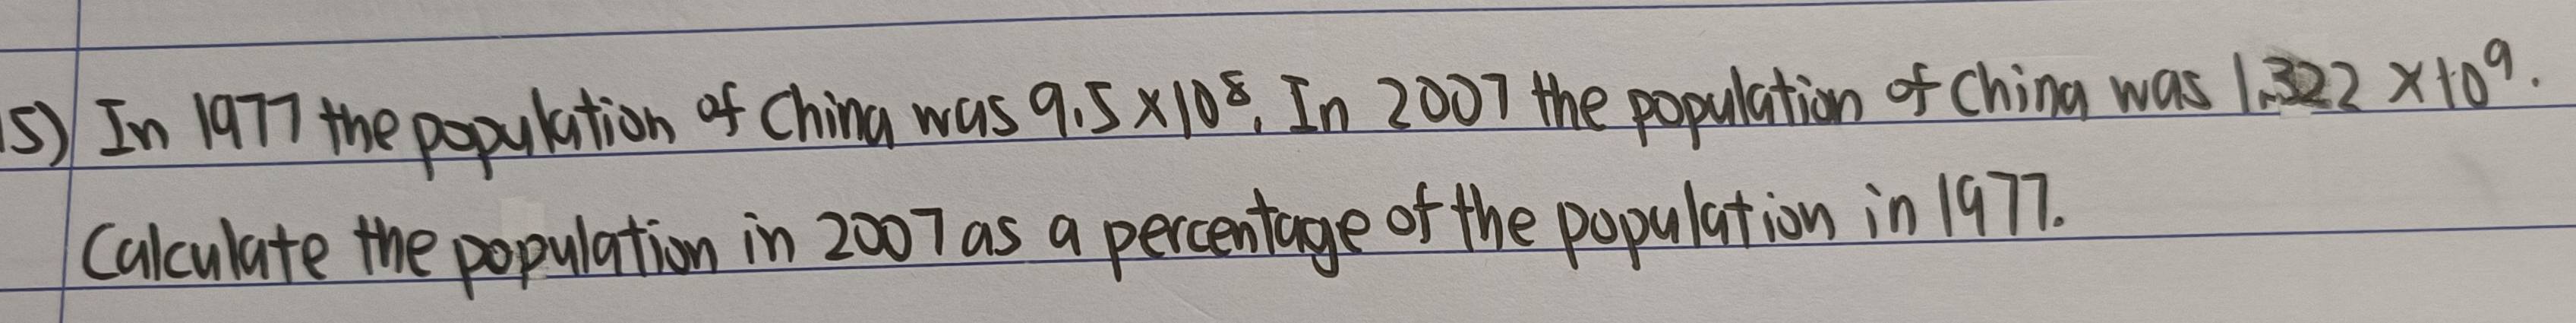 15) In 1977 the population of China was 9.5 × 10⁸. In 2007 the population of China was 1.322 × 10⁹.
Calculate the population in 2007 as a percentage of the population in 1977.